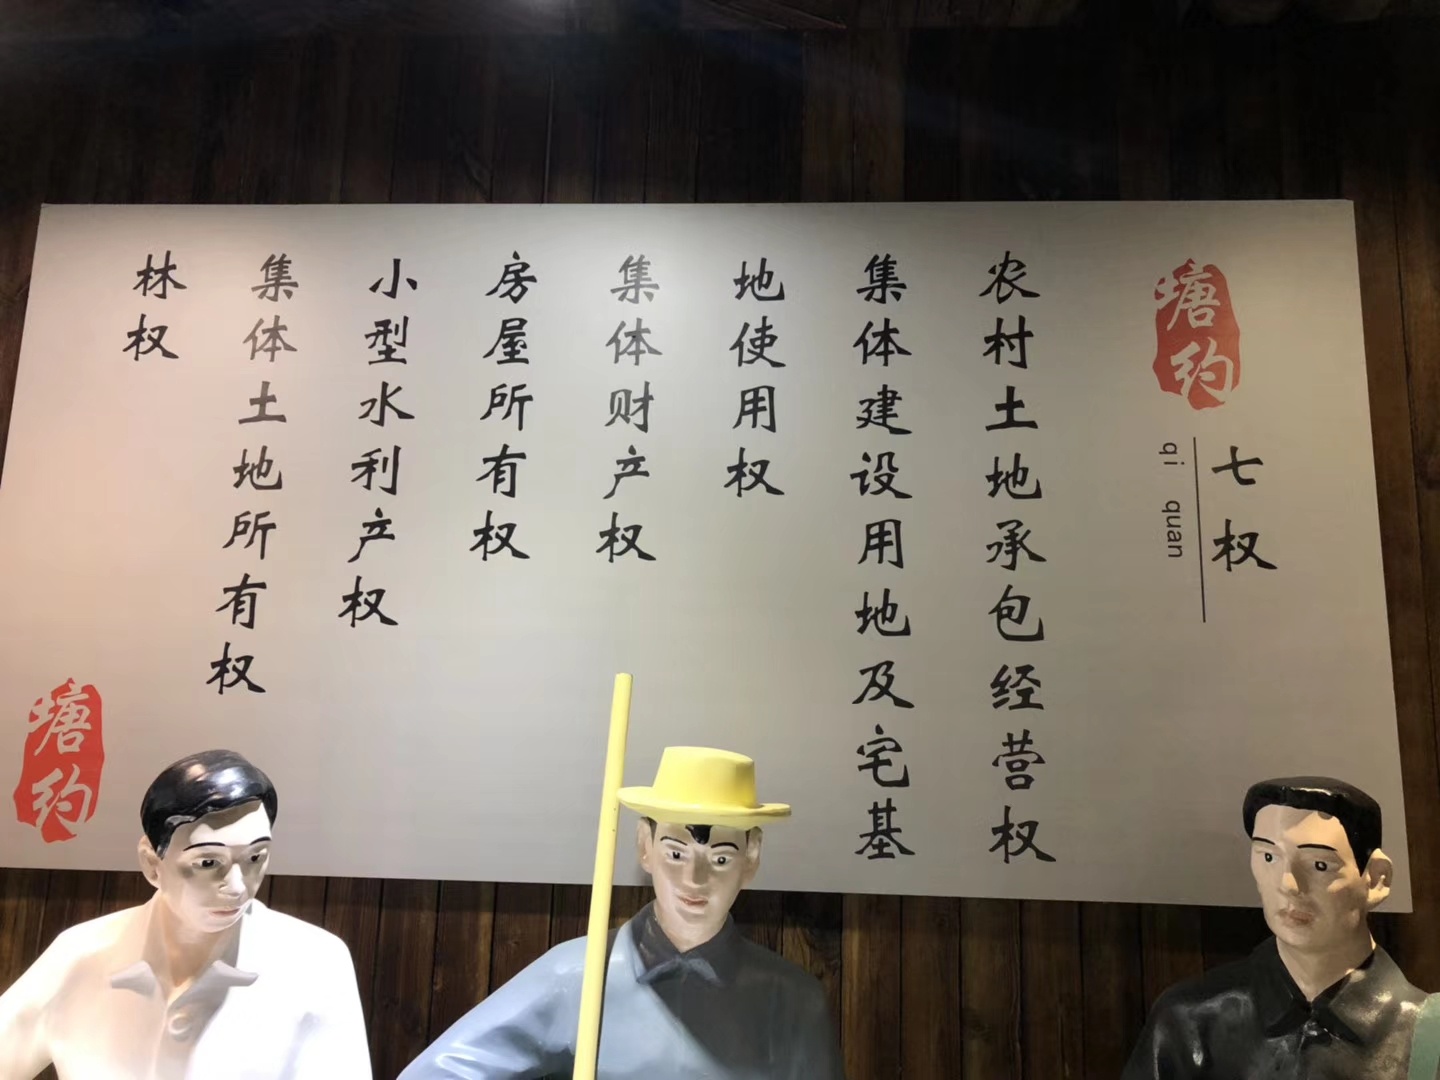 塘约
七权
qi quan
农村土地承包经营权
集体建设用地及宅基
地使用权
集体财产权
房屋所有权
小型水利产权
集体土地所有权
林权
塘约